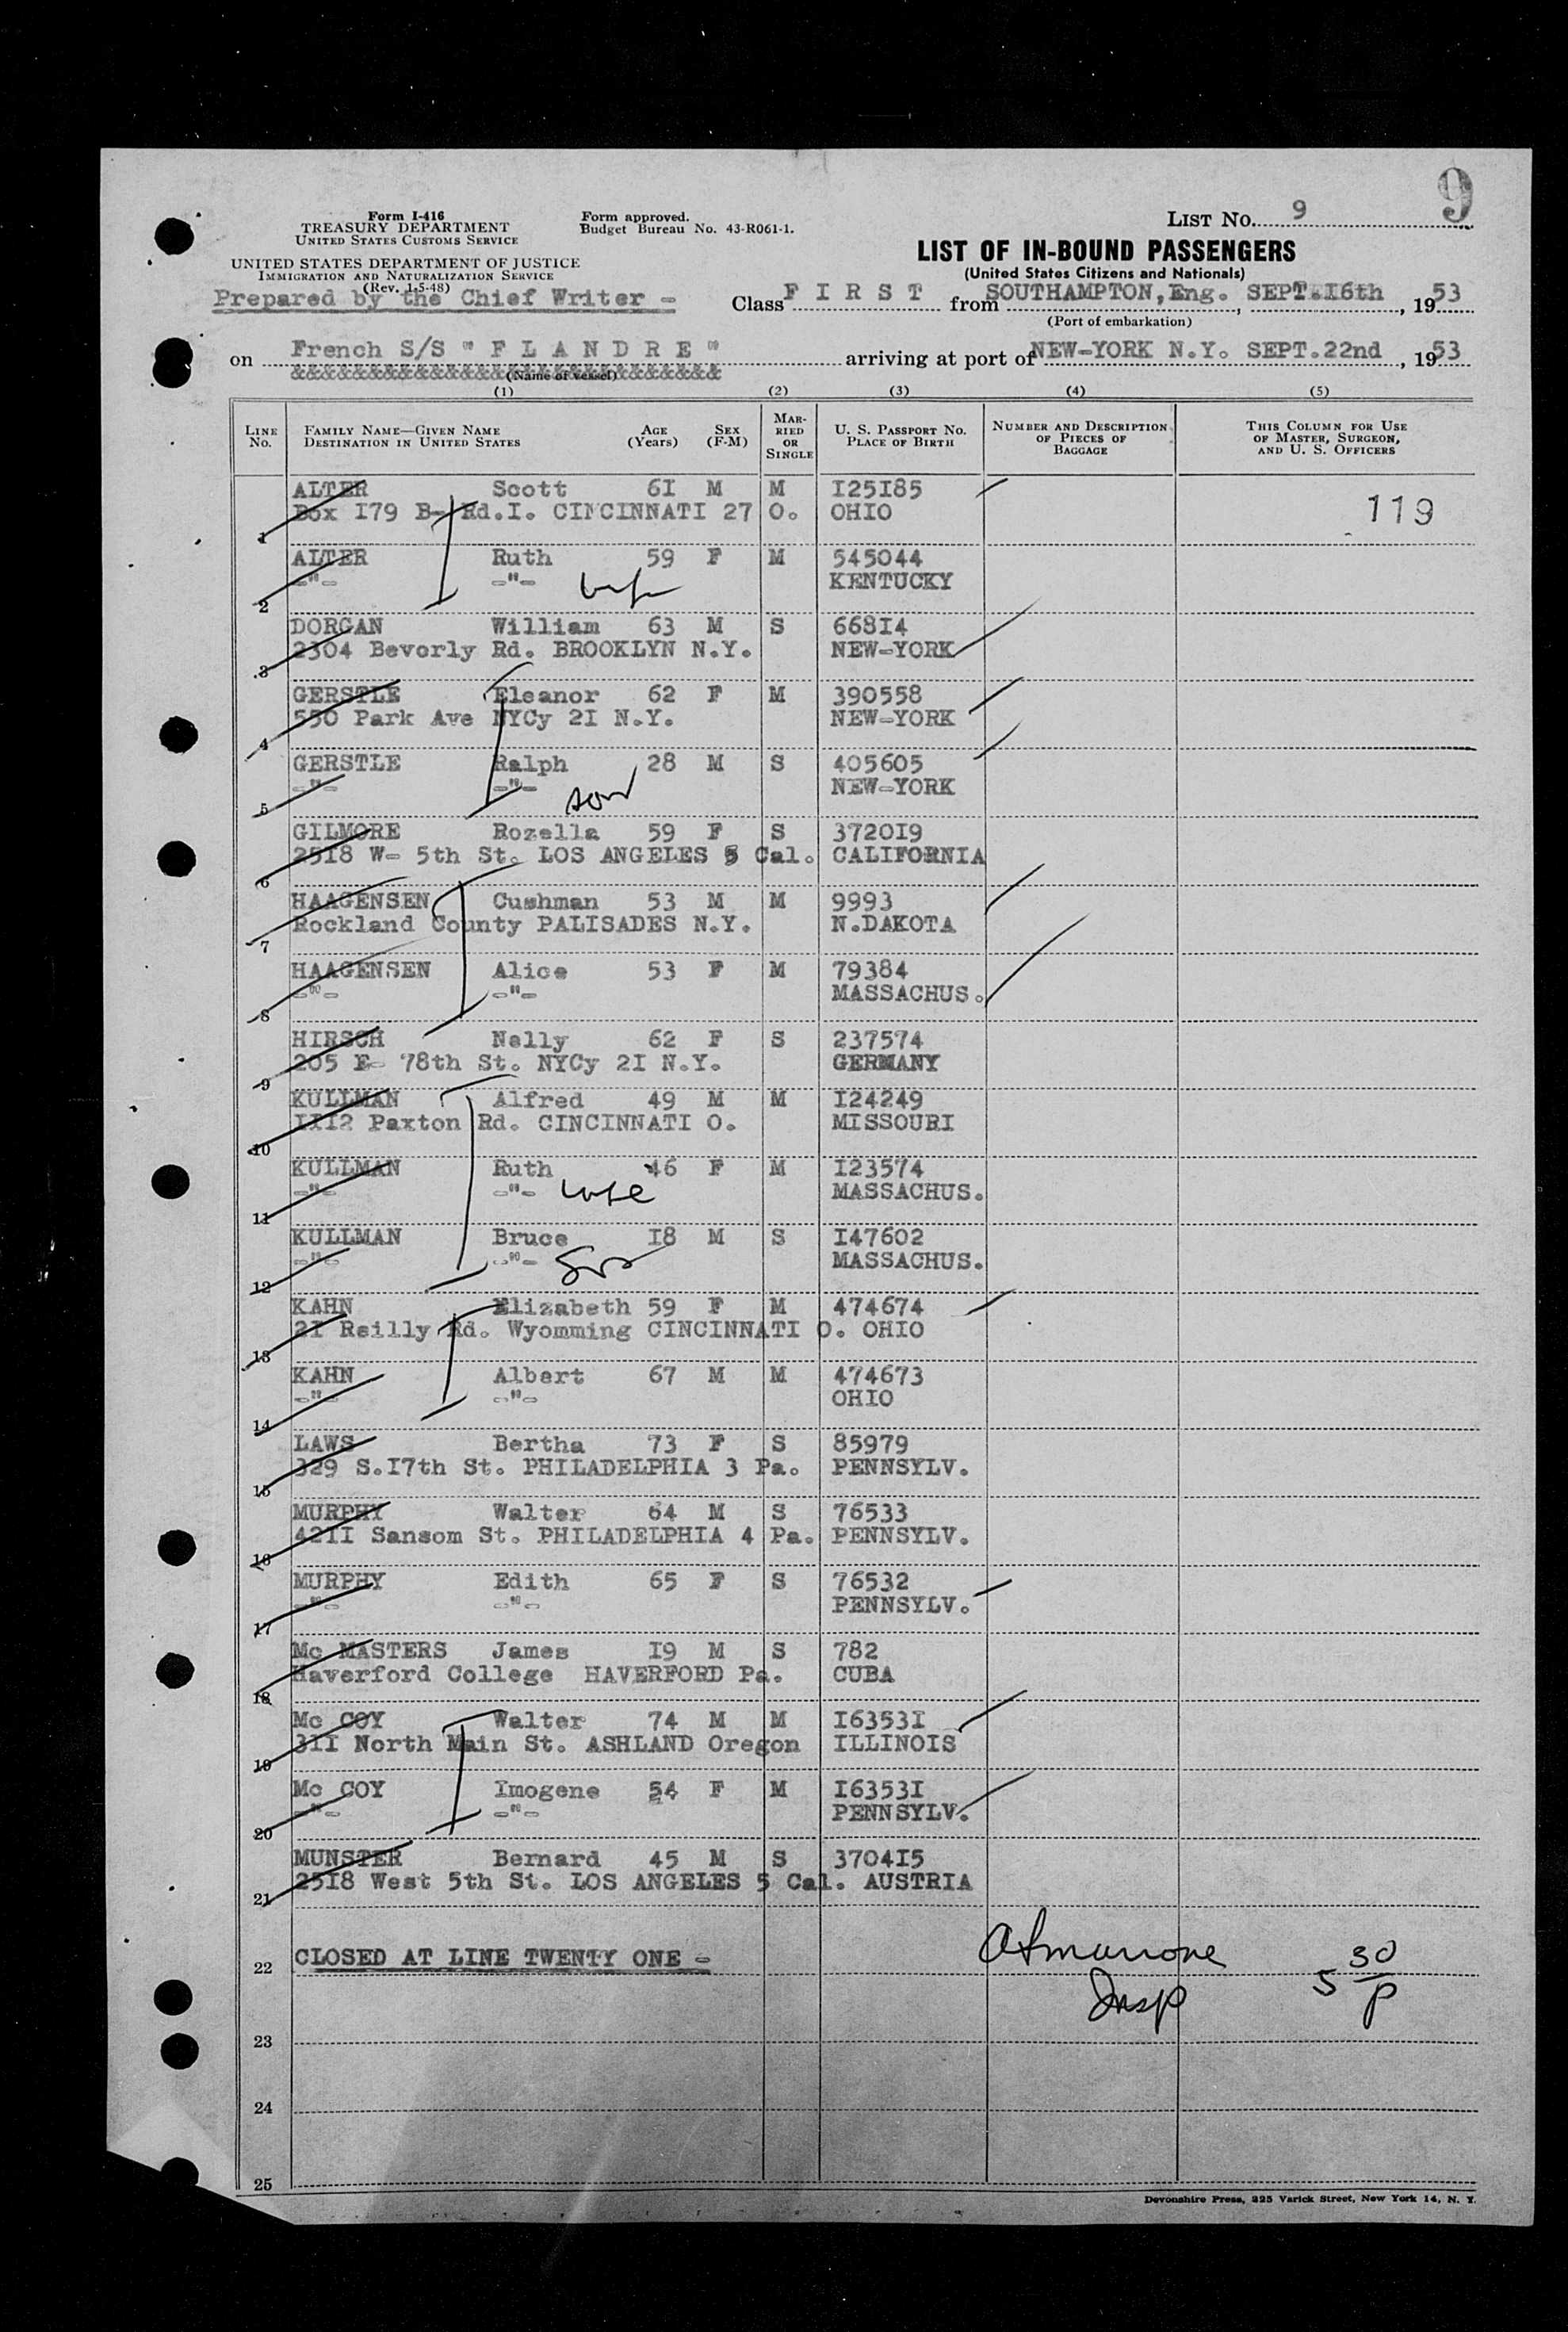 9
Form I-416
TREASURY DEPARTMENT
UNITED STATES CUSTOMS SERVICE
Form approved.
Budget Bureau No. 43-R061-1.
LIST NO. 9
UNITED STATES DEPARTMENT OF JUSTICE
IMMIGRATION AND NATURALIZATION SERVICE
(Rev. 1-5-48)
LIST OF IN-BOUND PASSENGERS
(United States Citizens and Nationals)
Prepared by the Chief Writer -
Class F I R S T from SOUTHAMPTON, Eng. SEPT.I6th, 1953
(Port of embarkation)
on French S/S " F L A N D R E " arriving at port of NEW-YORK N.Y. SEPT.22nd, 1953
&&&&&&&&&&&&&&&&&&&&&&&&&&&&
(Name of vessel)
(1) (2) (3) (4) (5)
LINE NO. FAMILY NAME—GIVEN NAME DESTINATION IN UNITED STATES AGE (Years) SEX (F-M) MARRIED OR SINGLE U. S. PASSPORT NO. PLACE OF BIRTH NUMBER AND DESCRIPTION OF PIECES OF BAGGAGE THIS COLUMN FOR USE OF MASTER, SURGEON, AND U. S. OFFICERS
ALTER Scott 6I M M I25I85
1 Box I79 B- Rd.I. CINCINNATI 27 O. OHIO 119
ALTER Ruth 59 F M 545044
2 -"- -"- wife KENTUCKY
DORGAN William 63 M S 668I4
3 2304 Beverly Rd. BROOKLYN N.Y. NEW-YORK
GERSTLE Eleanor 62 F M 390558
4 550 Park Ave NYCy 2I N.Y. NEW-YORK
GERSTLE Ralph 28 M S 405605
5 -"- -"- son NEW-YORK
GILMORE Rozella 59 F S 3720I9
6 25I8 W- 5th St. LOS ANGELES 5 Cal. CALIFORNIA
HAAGENSEN Cushman 53 M M 9993
7 Rockland County PALISADES N.Y. N.DAKOTA
HAAGENSEN Alice 53 F M 79384
8 -"- -"- MASSACHUS.
HIRSCH Nelly 62 F S 237574
9 205 E- 78th St. NYCy 2I N.Y. GERMANY
KULLMAN Alfred 49 M M I24249
10 III2 Paxton Rd. CINCINNATI O. MISSOURI
KULLMAN Ruth 46 F M I23574
11 -"- -"- wife MASSACHUS.
KULLMAN Bruce I8 M S I47602
12 -"- -"- Son MASSACHUS.
KAHN Elizabeth 59 F M 474674
13 2I Reilly Rd. Wyomming CINCINNATI O. OHIO
KAHN Albert 67 M M 474673
14 -"- -"- OHIO
LAWS Bertha 73 F S 85979
15 329 S.I7th St. PHILADELPHIA 3 Pa. PENNSYLV.
MURPHY Walter 64 M S 76533
16 42II Sansom St. PHILADELPHIA 4 Pa. PENNSYLV.
MURPHY Edith 65 F S 76532
17 -"- -"- PENNSYLV.
Mc MASTERS James I9 M S 782
18 Haverford College HAVERFORD Pa. CUBA
Mc COY Walter 74 M M I6353I
19 3II North Main St. ASHLAND Oregon ILLINOIS
Mc COY Imogene 54 F M I6353I
20 -"- -"- PENNSYLV.
MUNSTER Bernard 45 M S 3704I5
21 25I8 West 5th St. LOS ANGELES 5 Cal. AUSTRIA
22 CLOSED AT LINE TWENTY ONE -
Insp 5 30 P
23
24
25
Devonshire Press, 225 Varick Street, New York 14, N. Y.